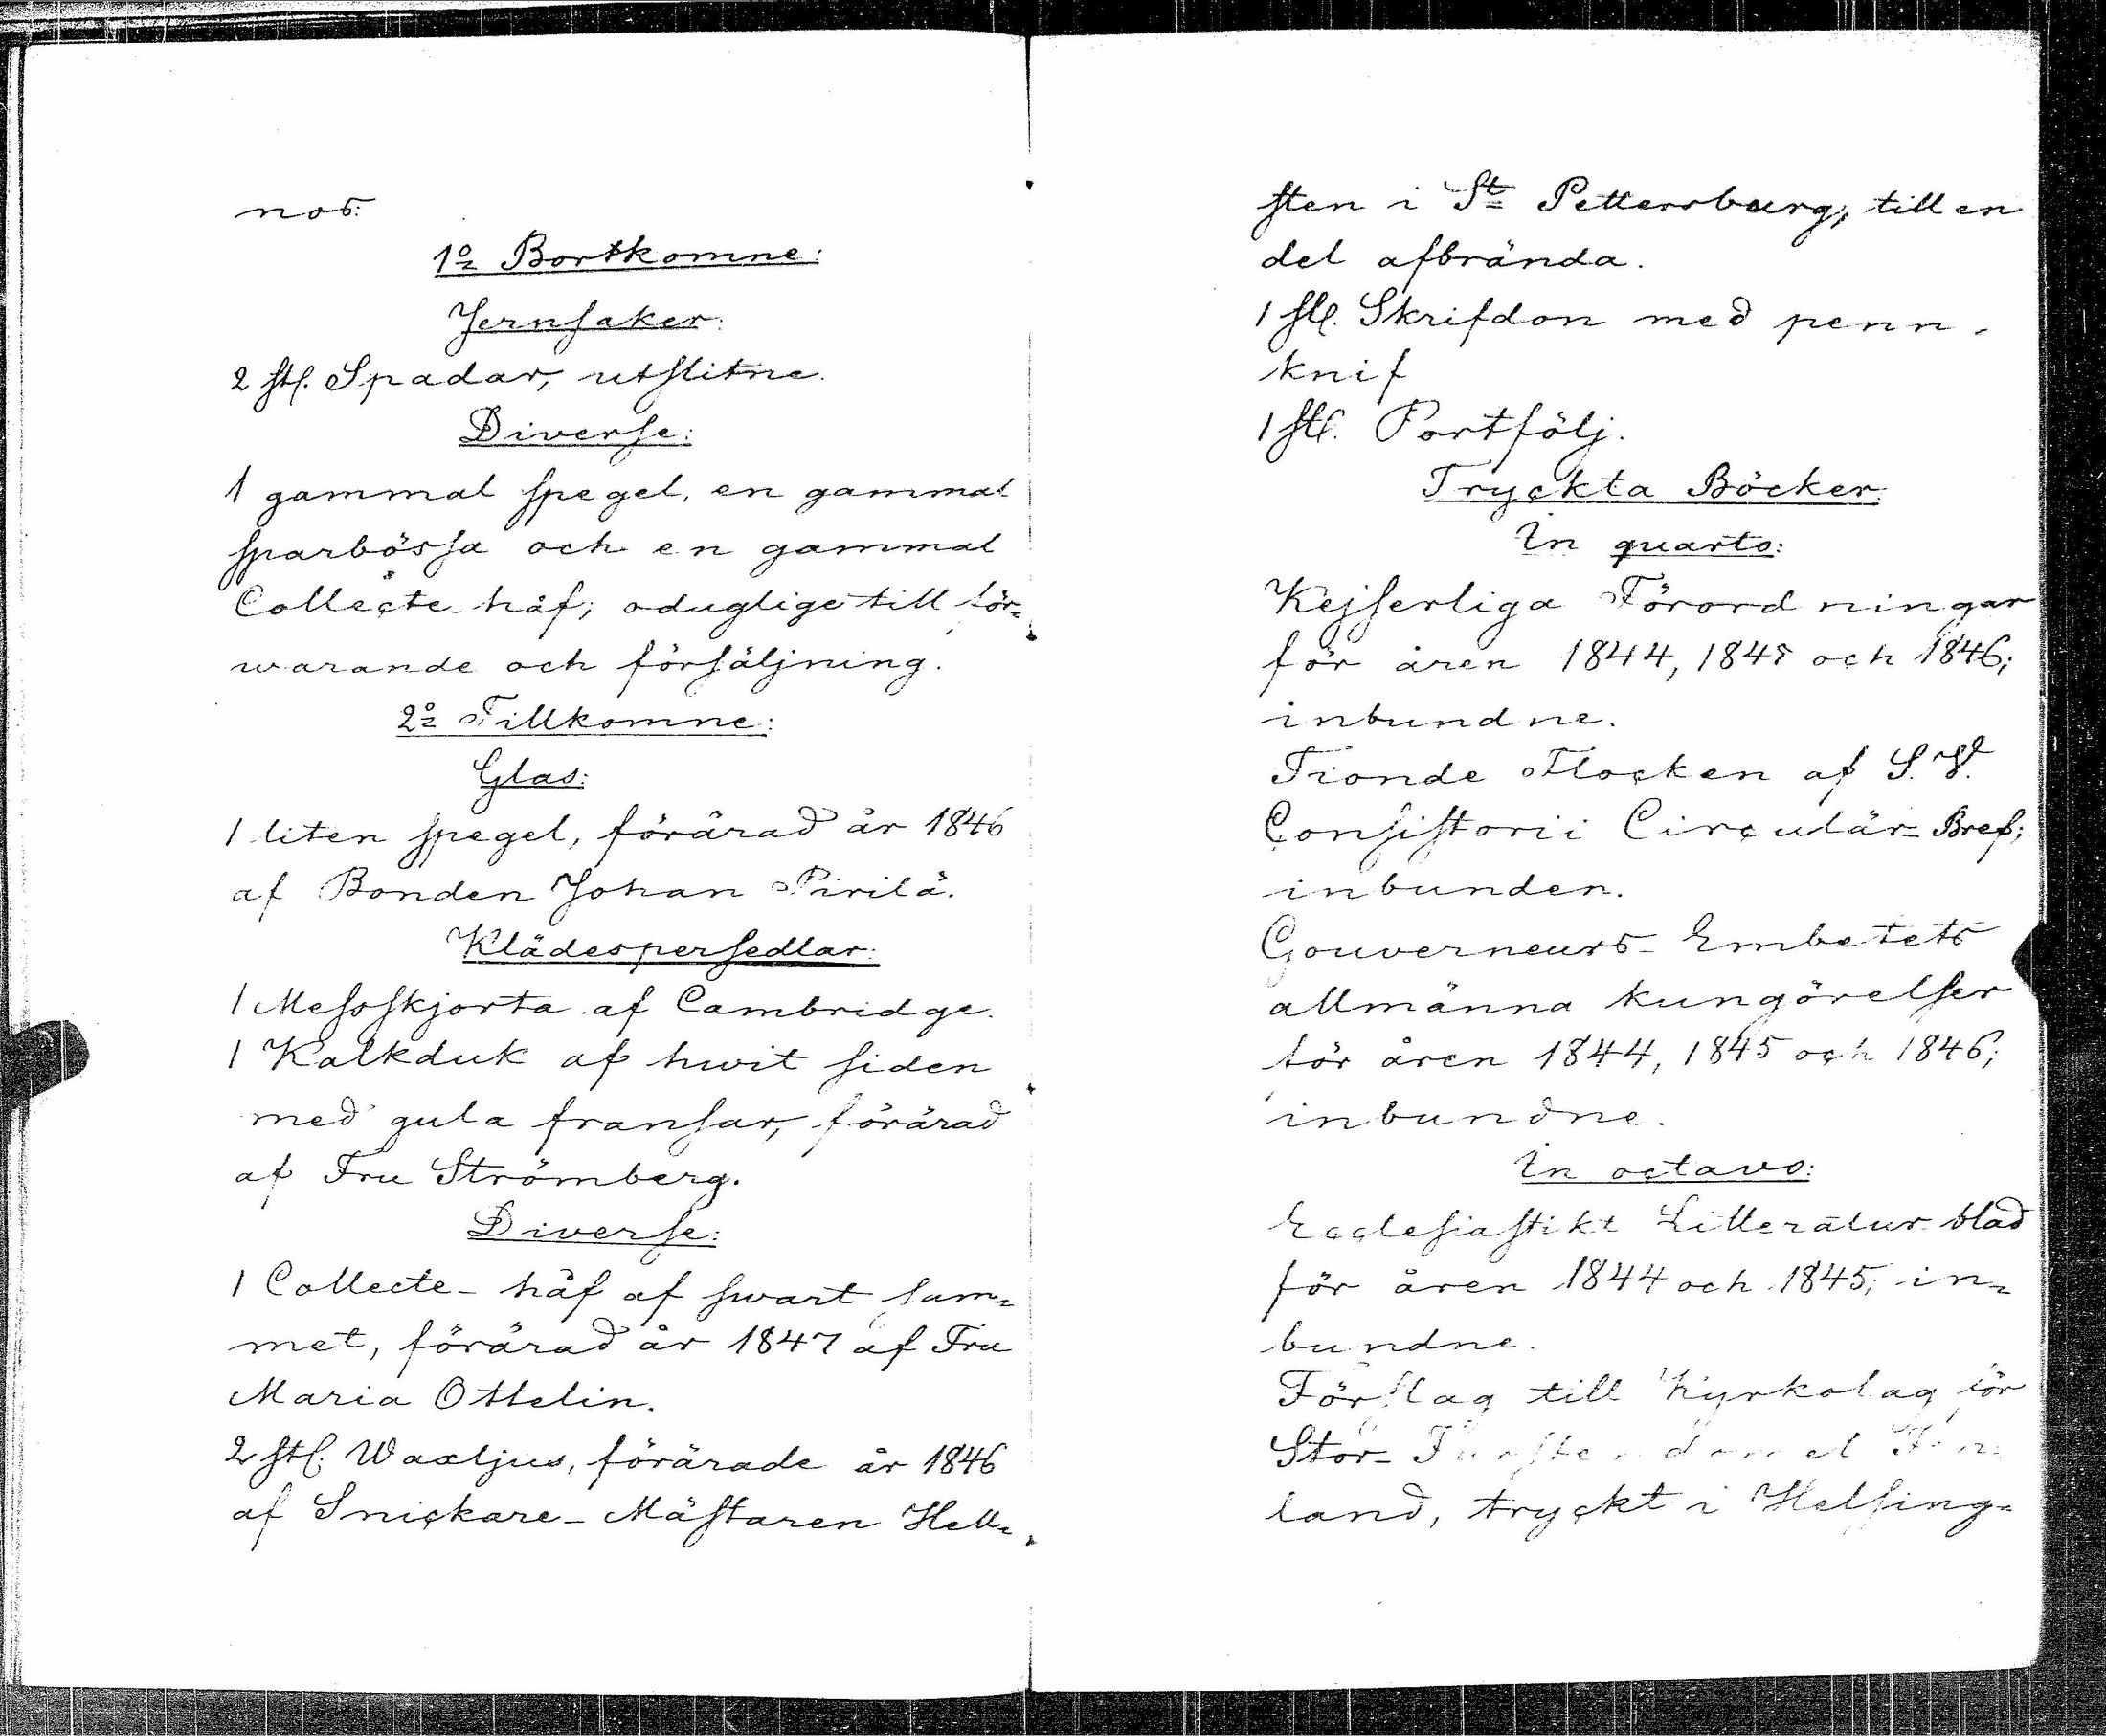 nos:
1o Bortkomne:
Jernsaker:
2 st. Spadar, utslitne.
Diverse:
1 gammal spegel, en gammal
sparbössa och en gammal
Collecte-håf; odugliga till för=
warande och försäljning.
2o Tillkomne:
Glas:
1 liten spegel, förärad år 1846
af Bonden Johan Pirilä.
Klädespersedlar:
1 Messskjorta af Cambridge.
1 Kalkduk af hwit siden
med gula fransar, förärad
af Fru Strömberg.
Diverse:
1 Collecte-håf af swart sam=
met, förärad år 1847 af Fru
Maria Ottelin.
2 st. Waxljus, förärade år 1846
af Snickare-Mästaren Hell=
sten i St Pettersburg, till en
del afbrända.
1 st. Skrifdon med penn-
knif
1 st. Portfölj.
Tryckta Böcker.
In quarto:
Kejserliga Förordningar
för åren 1844, 1845 och 1846;
inbundne.
Tionde Flocken af S. V.
Consistorii Circulär-Bref;
inbunden.
Gouverneurs-Embetets
allmänna kungörelser
för åren 1844, 1845 och 1846;
inbundne.
In octavo:
Ecclesiastikt Litteratur blad
för åren 1844 och 1845; in=
bundne.
Förslag till Kyrkolag för
Stor-Furstendömet Fin=
land, tryckt i Helsing=